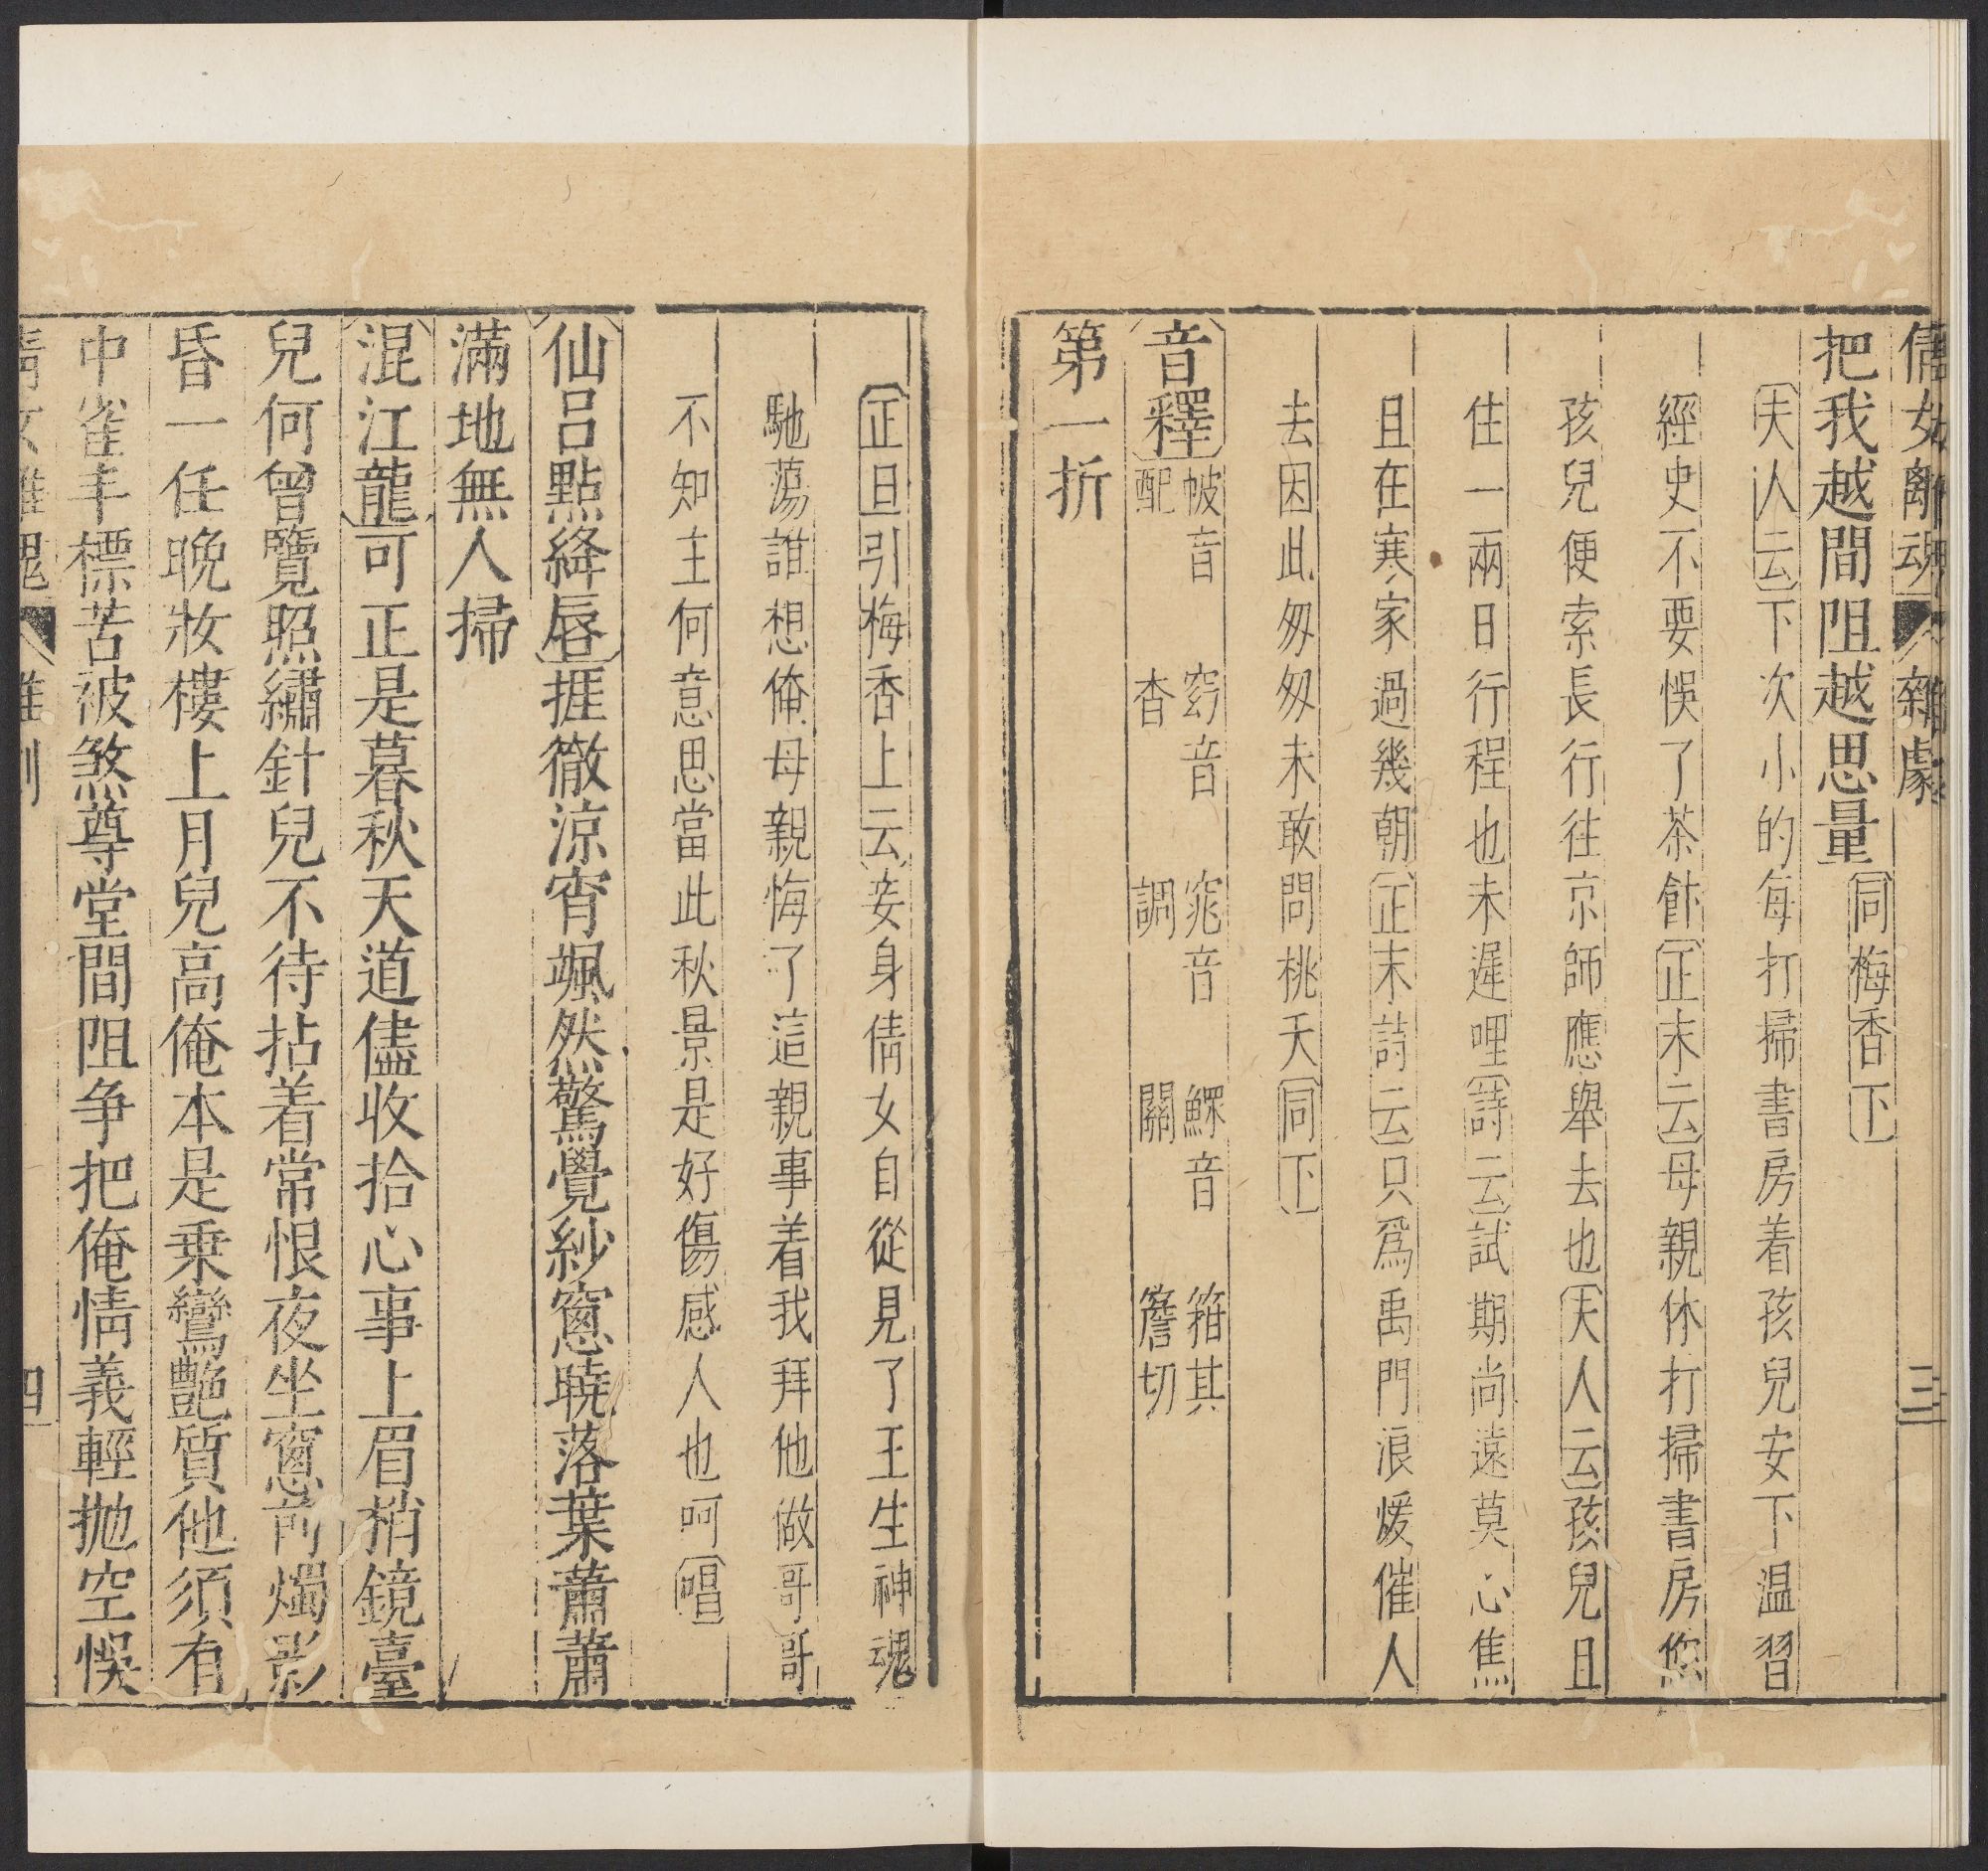 倩女離魂 雜劇 三
把我越間阻越思量同梅香下
夫人云下次小的每打掃書房着孩兒安下温習
經史不要悞了茶飯正末云母親休打掃書房您
孩兒便索長行往京師應舉去也夫人云孩兒且
住一兩日行程也未遲哩詩云試期尚遠莫心焦
且在寒家過幾朝正末詩云只爲禹門浪煖催人
去因此匆匆未敢問桃夭同下
音釋 帔音配 窈音杳 窕音調 鰥音關 箝其簷切
第一折
正旦引梅香上云妾身倩女自從見了王生神魂
馳蕩誰想俺母親悔了這親事着我拜他做哥哥
不知主何意思當此秋景是好傷感人也呵唱
仙呂點絳唇捱徹涼宵颯然驚覺紗窻曉落葉蕭蕭
滿地無人掃
混江龍可正是暮秋天道儘收拾心事上眉梢鏡臺
兒何曾覽照繡針兒不待拈着常恨夜坐窻前燭影
昏一任晚妝樓上月兒高俺本是乗鸞艶質他須有
中雀丰標苦被煞尊堂間阻争把俺情義輕拋空悞
倩女離魂 雜劇 四